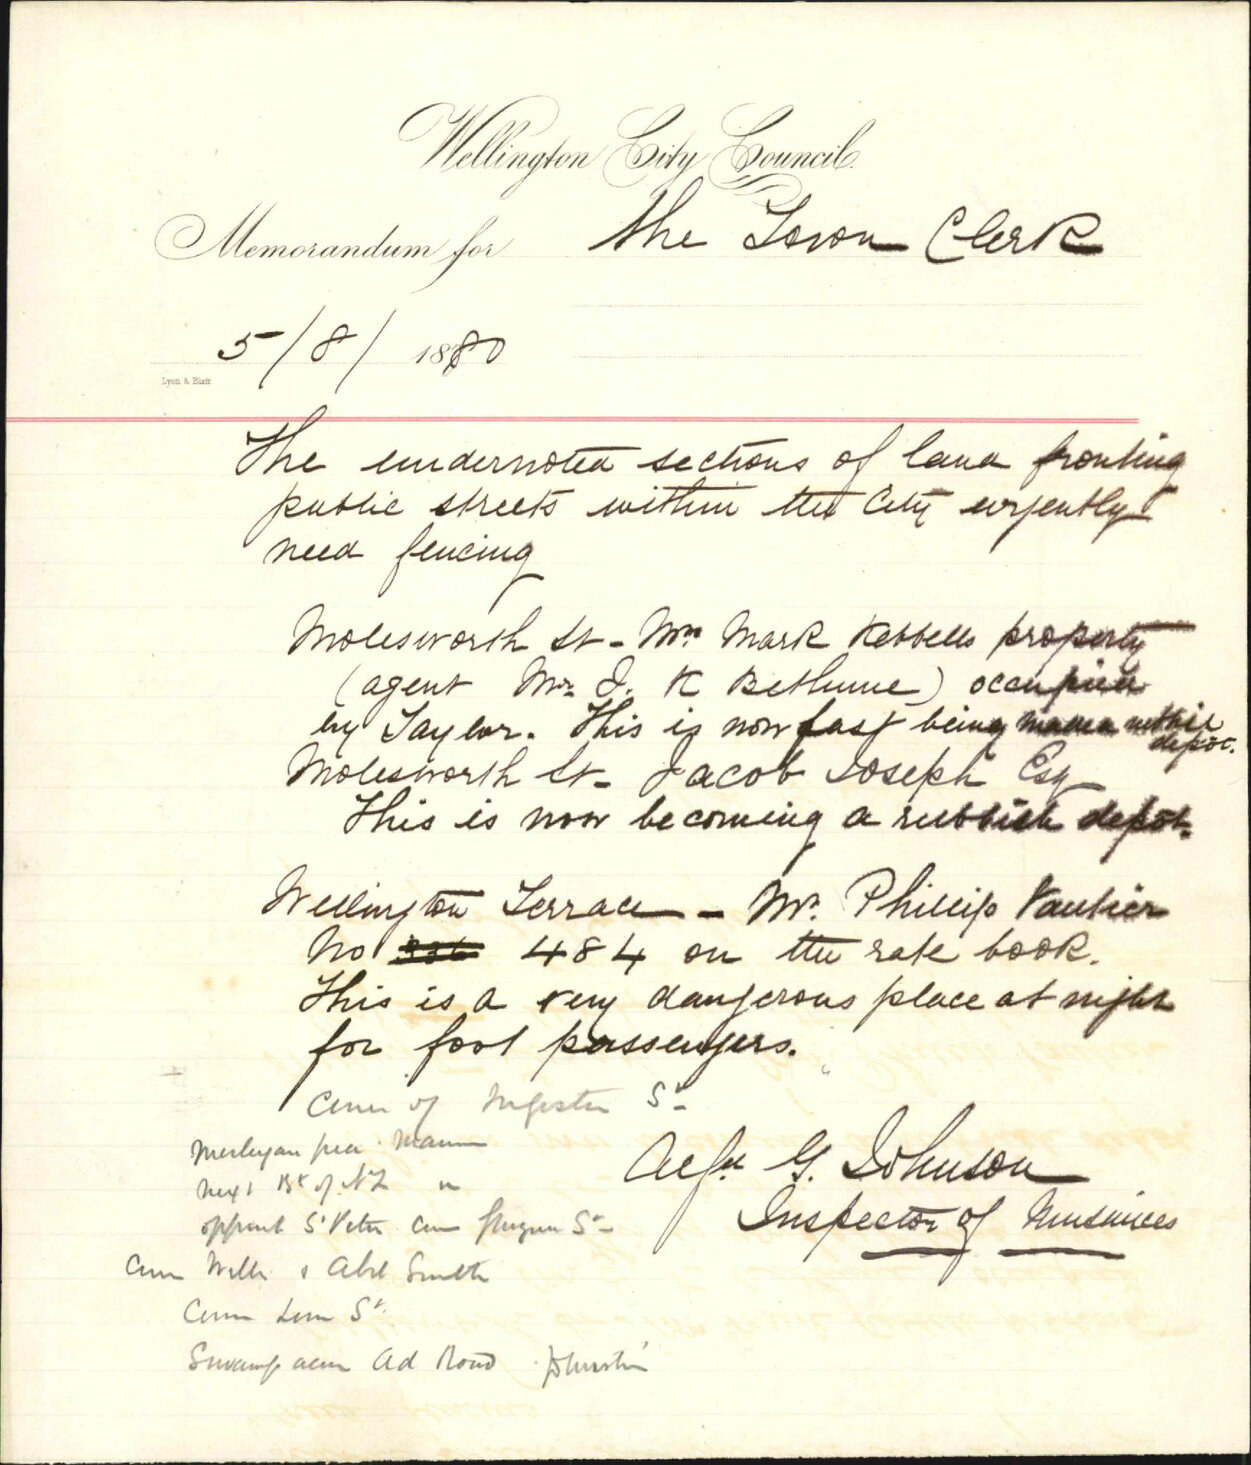 Wellington City Council.
Memorandum for The Town Clerk
5/8/1880
Lyon & Blair
The undernoted sections of land fronting
public streets within the City urgently
need fencing
Molesworth St - Mr Mark Kebbells property
(agent Mr J. K Bethune) occupied
by Taylor. This is now fast being made rubbish
depot.
Molesworth St - Jacob Joseph Esq
This is now becoming a rubbish depôt.
Wellington Terrace - Mr. Phillip Vautier
No 484 on the rate book.
This is a very dangerous place at night
for foot passengers.
Corner of Ingestre St
Manners
next Bk of NZ "
St Peter
G. Johnson
Inspector of Nuisances
Corner Willis & Abel Smith
Corner St
Swamp Ad Road Johnston